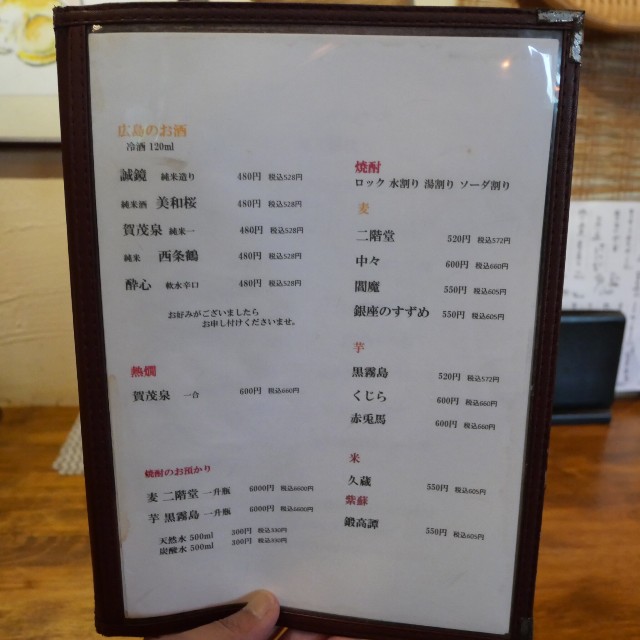 広島のお酒
冷酒 120ml
誠鏡 純米造り 480円 税込528円
純米酒 美和桜 480円 税込528円
賀茂泉 純米一 480円 税込528円
純米 西条鶴 480円 税込528円
酔心 軟水辛口 480円 税込528円
お好みがございましたら
お申し付けくださいませ。
熱燗
賀茂泉 一合 600円 税込660円
焼酎のお預かり
麦 二階堂 一升瓶 6000円 税込6600円
芋 黒霧島 一升瓶 6000円 税込6600円
天然水 500ml 300円 税込330円
炭酸水 500ml 300円 税込330円
焼酎
ロック 水割り 湯割り ソーダ割り
麦
二階堂 520円 税込572円
中々 600円 税込660円
閻魔 550円 税込605円
銀座のすずめ 550円 税込605円
芋
黒霧島 520円 税込572円
くじら 600円 税込660円
赤兎馬 600円 税込660円
米
久蔵 550円 税込605円
紫蘇
鍛高譚 550円 税込605円